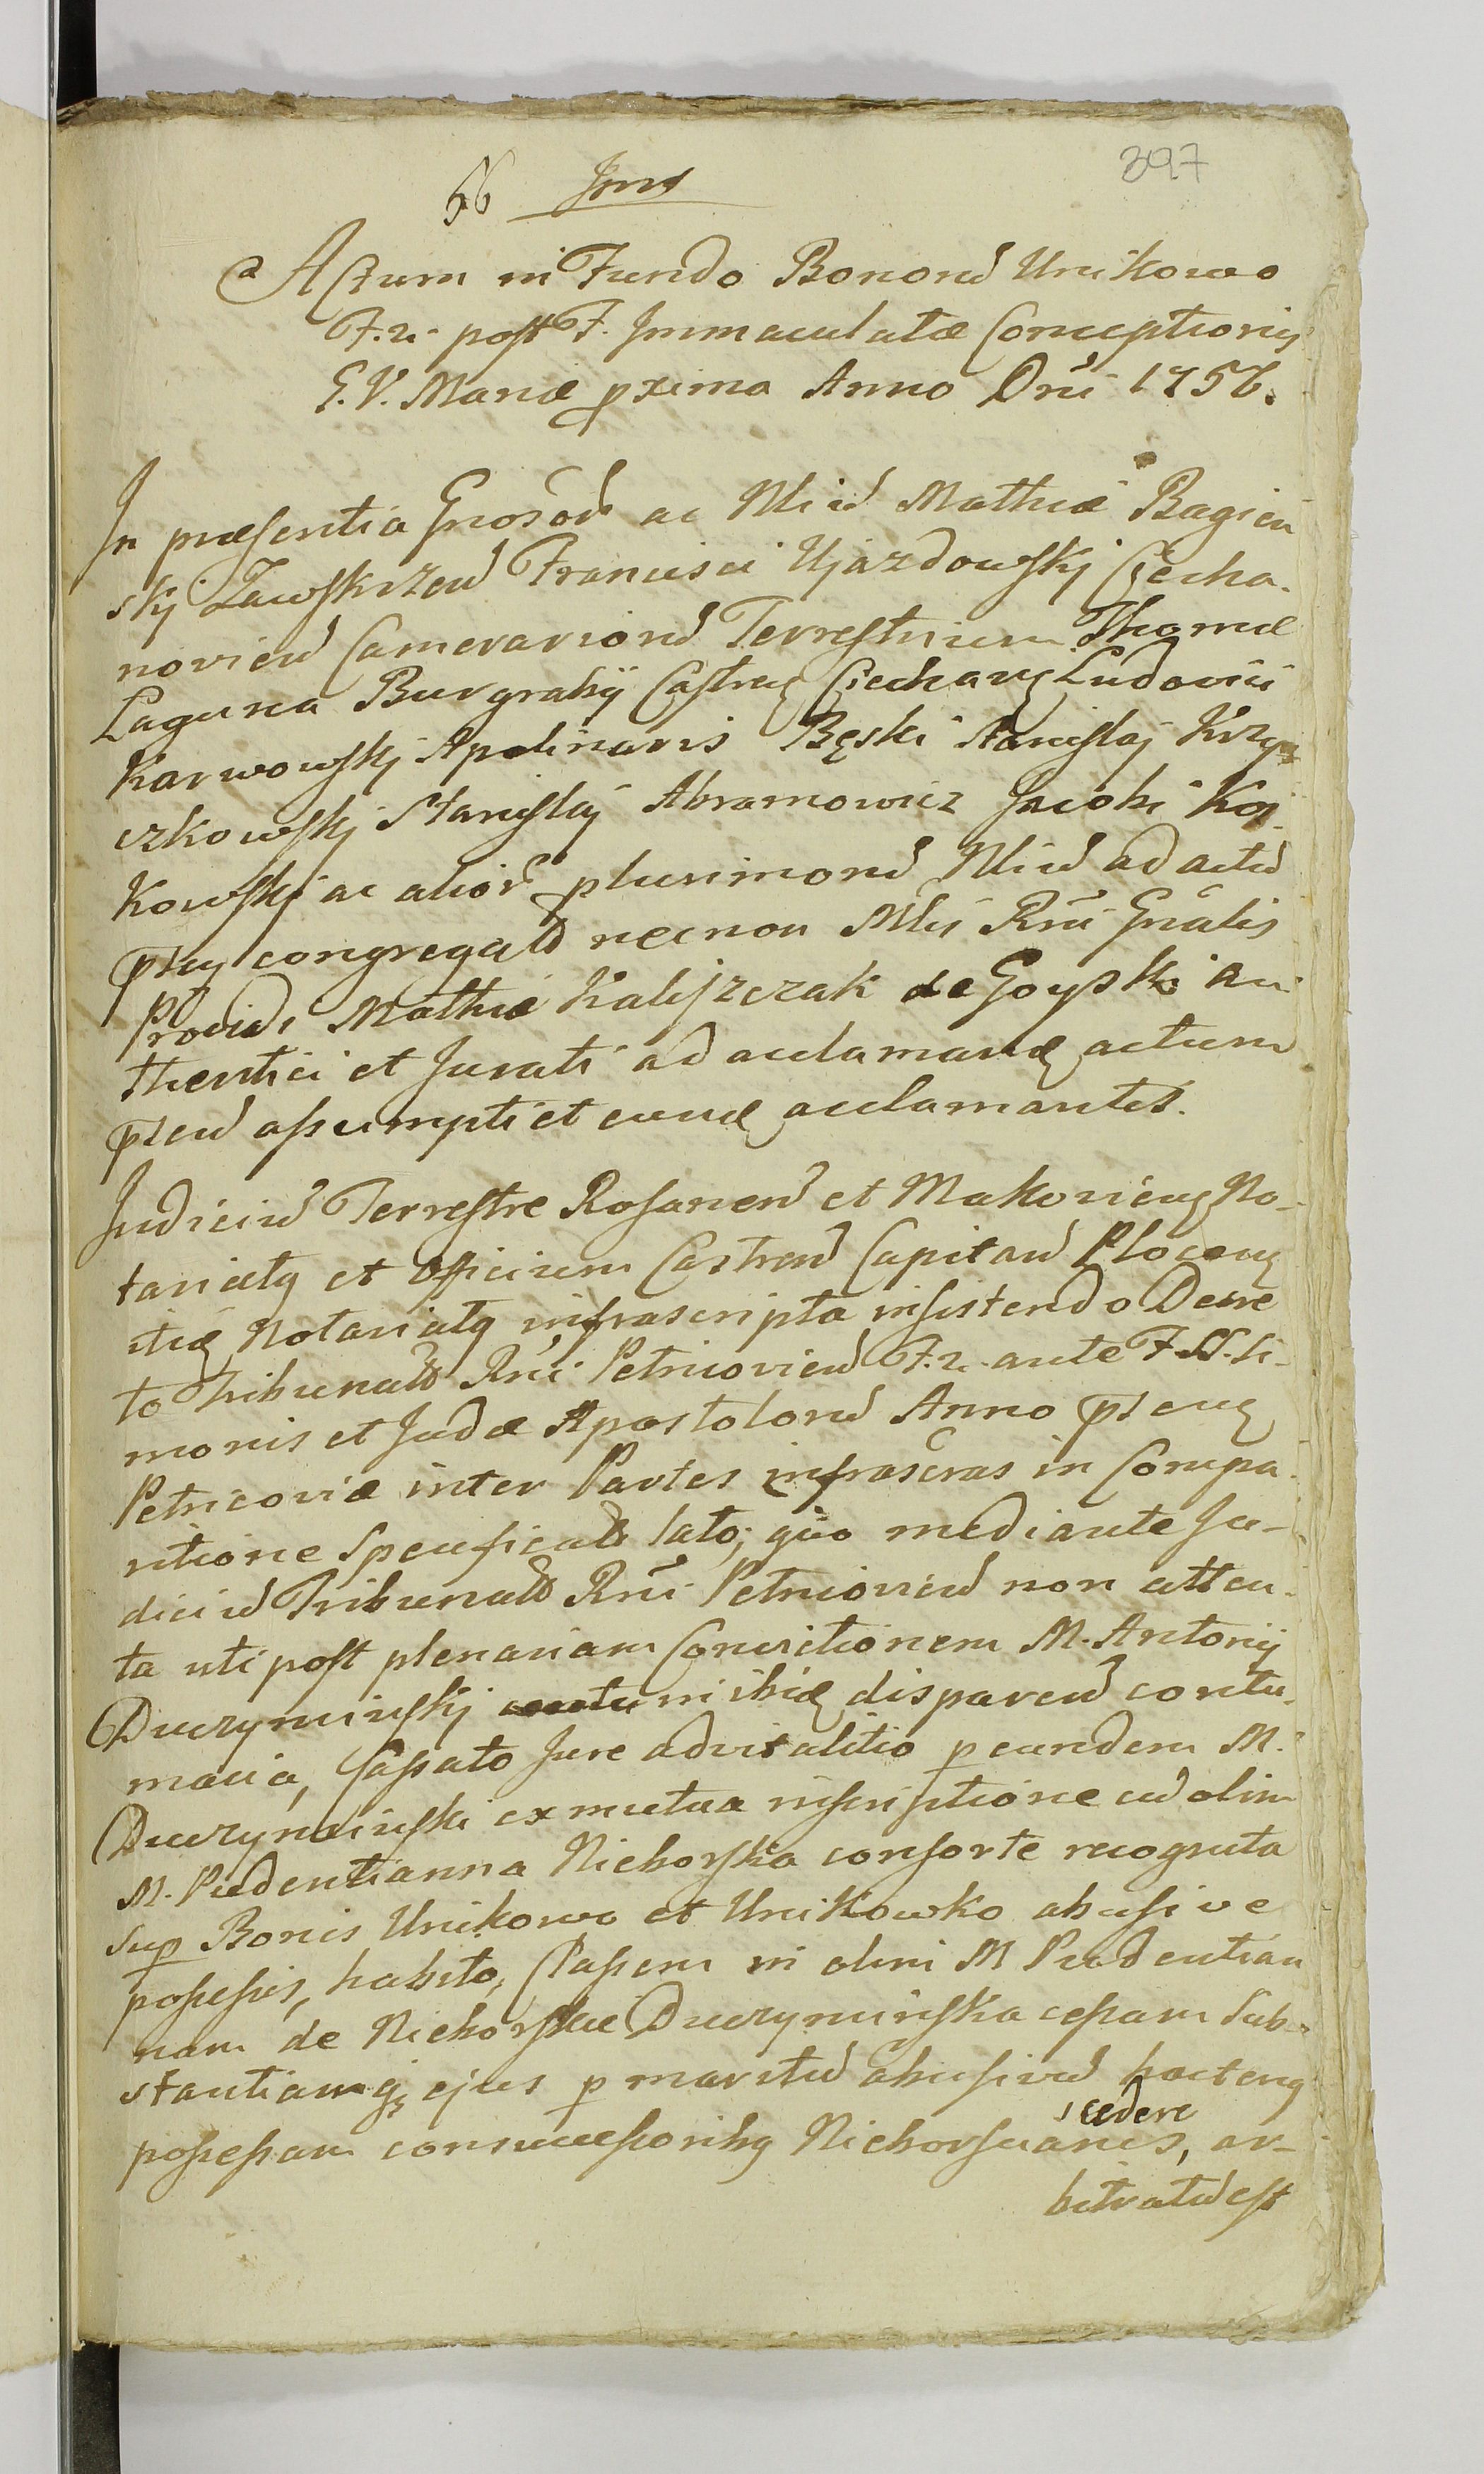 397
56 Jms
Actum in Fundo Bonorũ Unikowo
F. 2. post F. Immaculatæ Conceptionis
B. V. Mariæ pxima Anno Dñi 1756.
In præsentia Gnosorũ ac Nliũ Mathiæ Bagień
skj Zawskrzeñ Francisci Ujazdowskj Ciecha-
novieñ Camerariorũ Terrestrium Thomæ
Laguna Burgrabij Castreñ Ciechañ Ludovici
Karwowskj Apolinaris Bęski Stanislaj Krzy
czkowskj Stanislaj Abramowicz Jacobi Koj-
kowskj ac alior̃ plurimorũ Nliũ ad actũ
pñtẽ congregat̃ necnon Mlis Rñi Gñalis
Providi Mathiæ Kalijszczak de Goysk Au-
thentici et Jurati ad acclamanđ actum
pñteũ assumpti et eunđ acclamantis.
Judiciũ Terrestre Rosaneñ et Makovieñ No-
tariatq et Officium Castreñ Capitañ Ploceñ
itiđ Notariatq infrascripta insistendo Decre
to Tribunalt̃ Rñi Petricovieñ F. 2. ante F. SS. Si-
monis et Judæ Apostolorũ Anno pñteñ
Petricoviæ inter Partes infrascr̃as in Compa-
ritione Specificat̃ lato; quo mediante Ju-
diciũ Tribunalt̃ Rñi Petricovieñ non atten-
ta uti post plenariam Convictionem M. Antonij
Duczyminskj in ibiđ dispareñ contu-
macia, Cassato Jure advitalitio p eundem M.
Duczyminski ex mutua inscriptione cũ olim
M. Pudentianna Niehorska consorte recognita
sup Bonis Unikowo et Unikowko abusive
possessis, habito, Classem in olim M Pudentian
nam de Niehorskie Duczyminska cessam Sub-
stantiamq ejus p maritũ abusivũ hacteng
cedere
possessam consuccessoribg Niehorscianis, ar-
bitratũ est